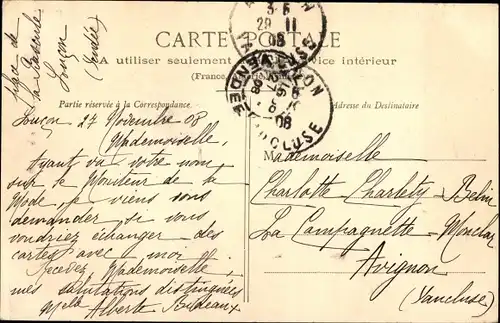 place de
la Bascule
Luçon
(Vendée)
CARTE POSTALE
A utiliser seulement
vice intérieur
(France
3-5
29 11
08
VENDÉE
08
VAUCLUSE
Partie réservée à la Correspondance
Adresse du Destinataire
Luçon 27 Novembre 08
Mademoiselle,
Ayant vu votre nom
sur le Moniteur de la
Mode, je viens vous
demander si vous
voudriez échanger des
cartes avec moi.
Recevez Mademoiselle,
mes salutations distinguées
Mela Alberte
Mademoiselle
Charlotte Charlety-Belm
La Campagnette-Monclar
Avignon
(Vaucluse)